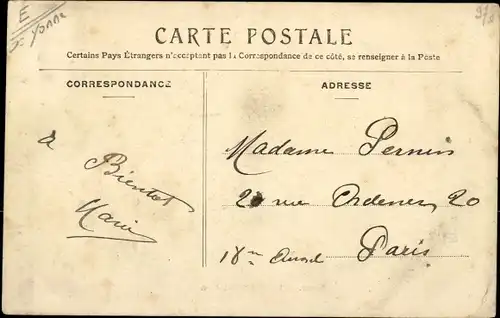 E
Yonne
CARTE POSTALE
Certains Pays Étrangers n'acceptant pas la Correspondance de ce côté, se renseigner à la Poste
CORRESPONDANCE
ADRESSE
à
Bientot
Marie
Madame Pernin
20 rue Ordener, 20
18me
Paris